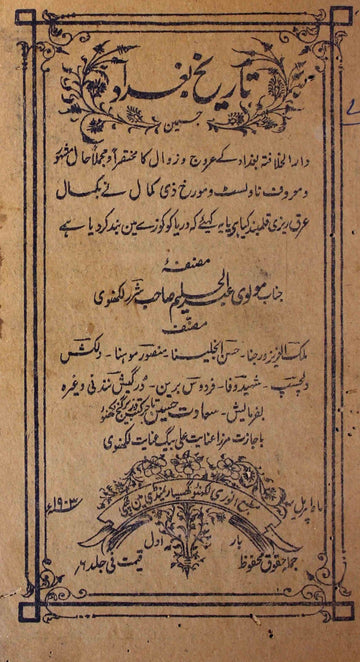 تاریخ بغداد
جسمین
دارالخلافۃ بغداد کے عروج و زوال کا مختصر اور مجملاً حال مشہو
و معروف ناولسٹ و مورخ ذی کمال نے بکمال
عرق ریزی قلمبند کیا ہی یا یہ کہیئے کہ دریا کو کوزے مین بند کردیا ہے
مصنفہٗ
جناب مولوی عبدالحلیم صاحب شرر لکھنوی
مصنف
ملک العزیز ورجنا۔ حسن انجلینا۔ منصور موہنا۔ دلکش
دلچسپ۔ شہید وفا۔ فردوس برین۔ درگیش نندنی وغیرہ
بفرمایش۔ سعادت حسین تاجر کتب لکھنؤ
باجازت مرزا عنایت علی بیگ عنایت لکھنوی
مطبع انوری لکھنؤ گھسیاری منڈی مین چھپی
ماہ اپریل
۱۹۰۳ء
بار اول
جملہ حقوق محفوظ
قیمت فی جلد ۶؍